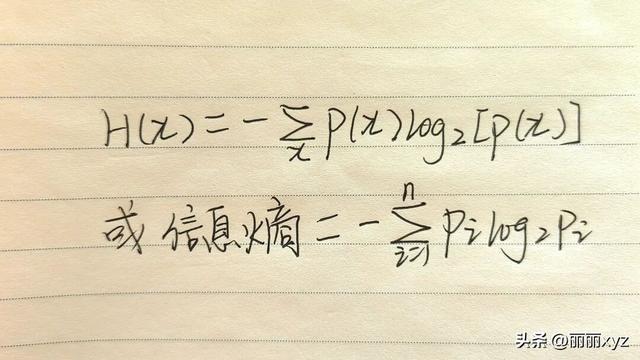 H(x)=-∑x P(x)log₂[P(x)]
或 信息熵=-∑ⁿi=1 Pi log₂Pi
头条 @丽丽xyz